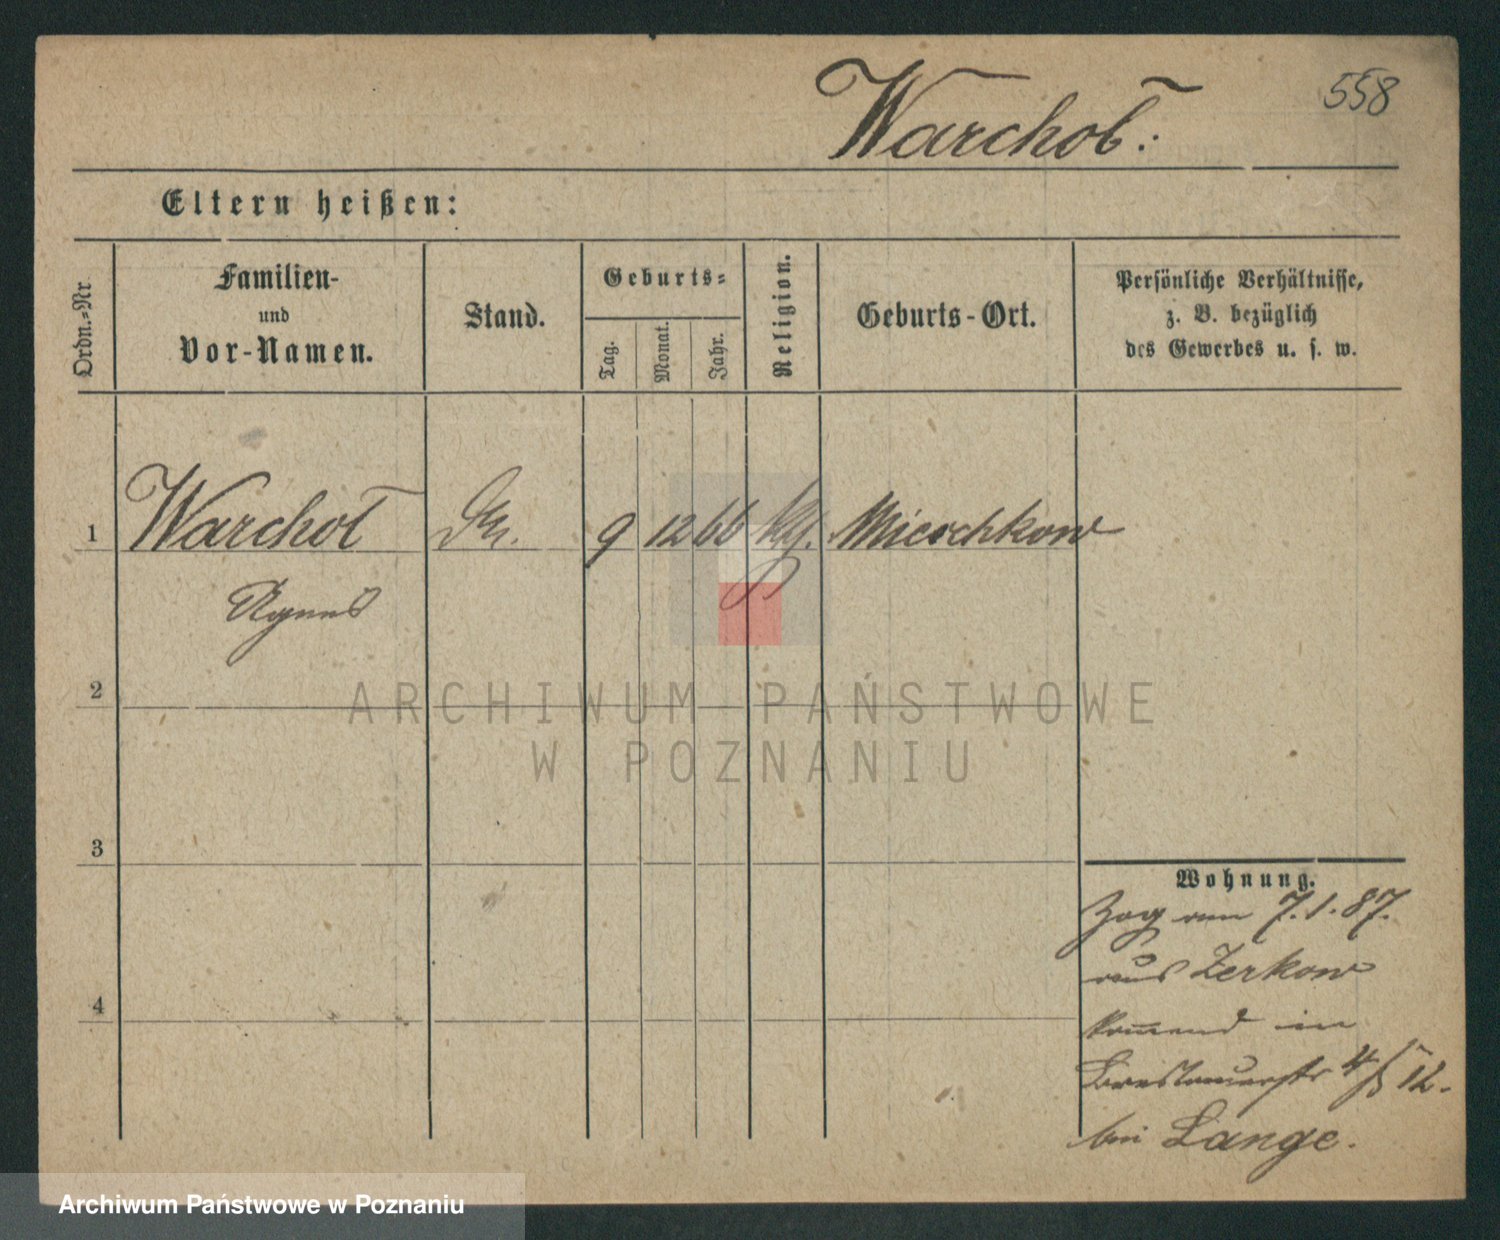 558
Warchoł:
Eltern heißen:
Ordn.-Nr
Familien-
und
Vor-Namen.
Stand.
Geburts-
Tag.
Monat.
Jahr.
Religion.
Geburts-Ort.
Persönliche Verhältnisse,
z. B. bezüglich
des Gewerbes u. s. w.
1 Warchoł 9 12 66 kth. Mieschkow
Agnes
2
ARCHIWUM PAŃSTWOWE
W POZNANIU
3
Wohnung.
Zog am 7.1.87.
aus Zerkow
kommend in
Breslauerstr
4
bei Lange.
Archiwum Państwowe w Poznaniu